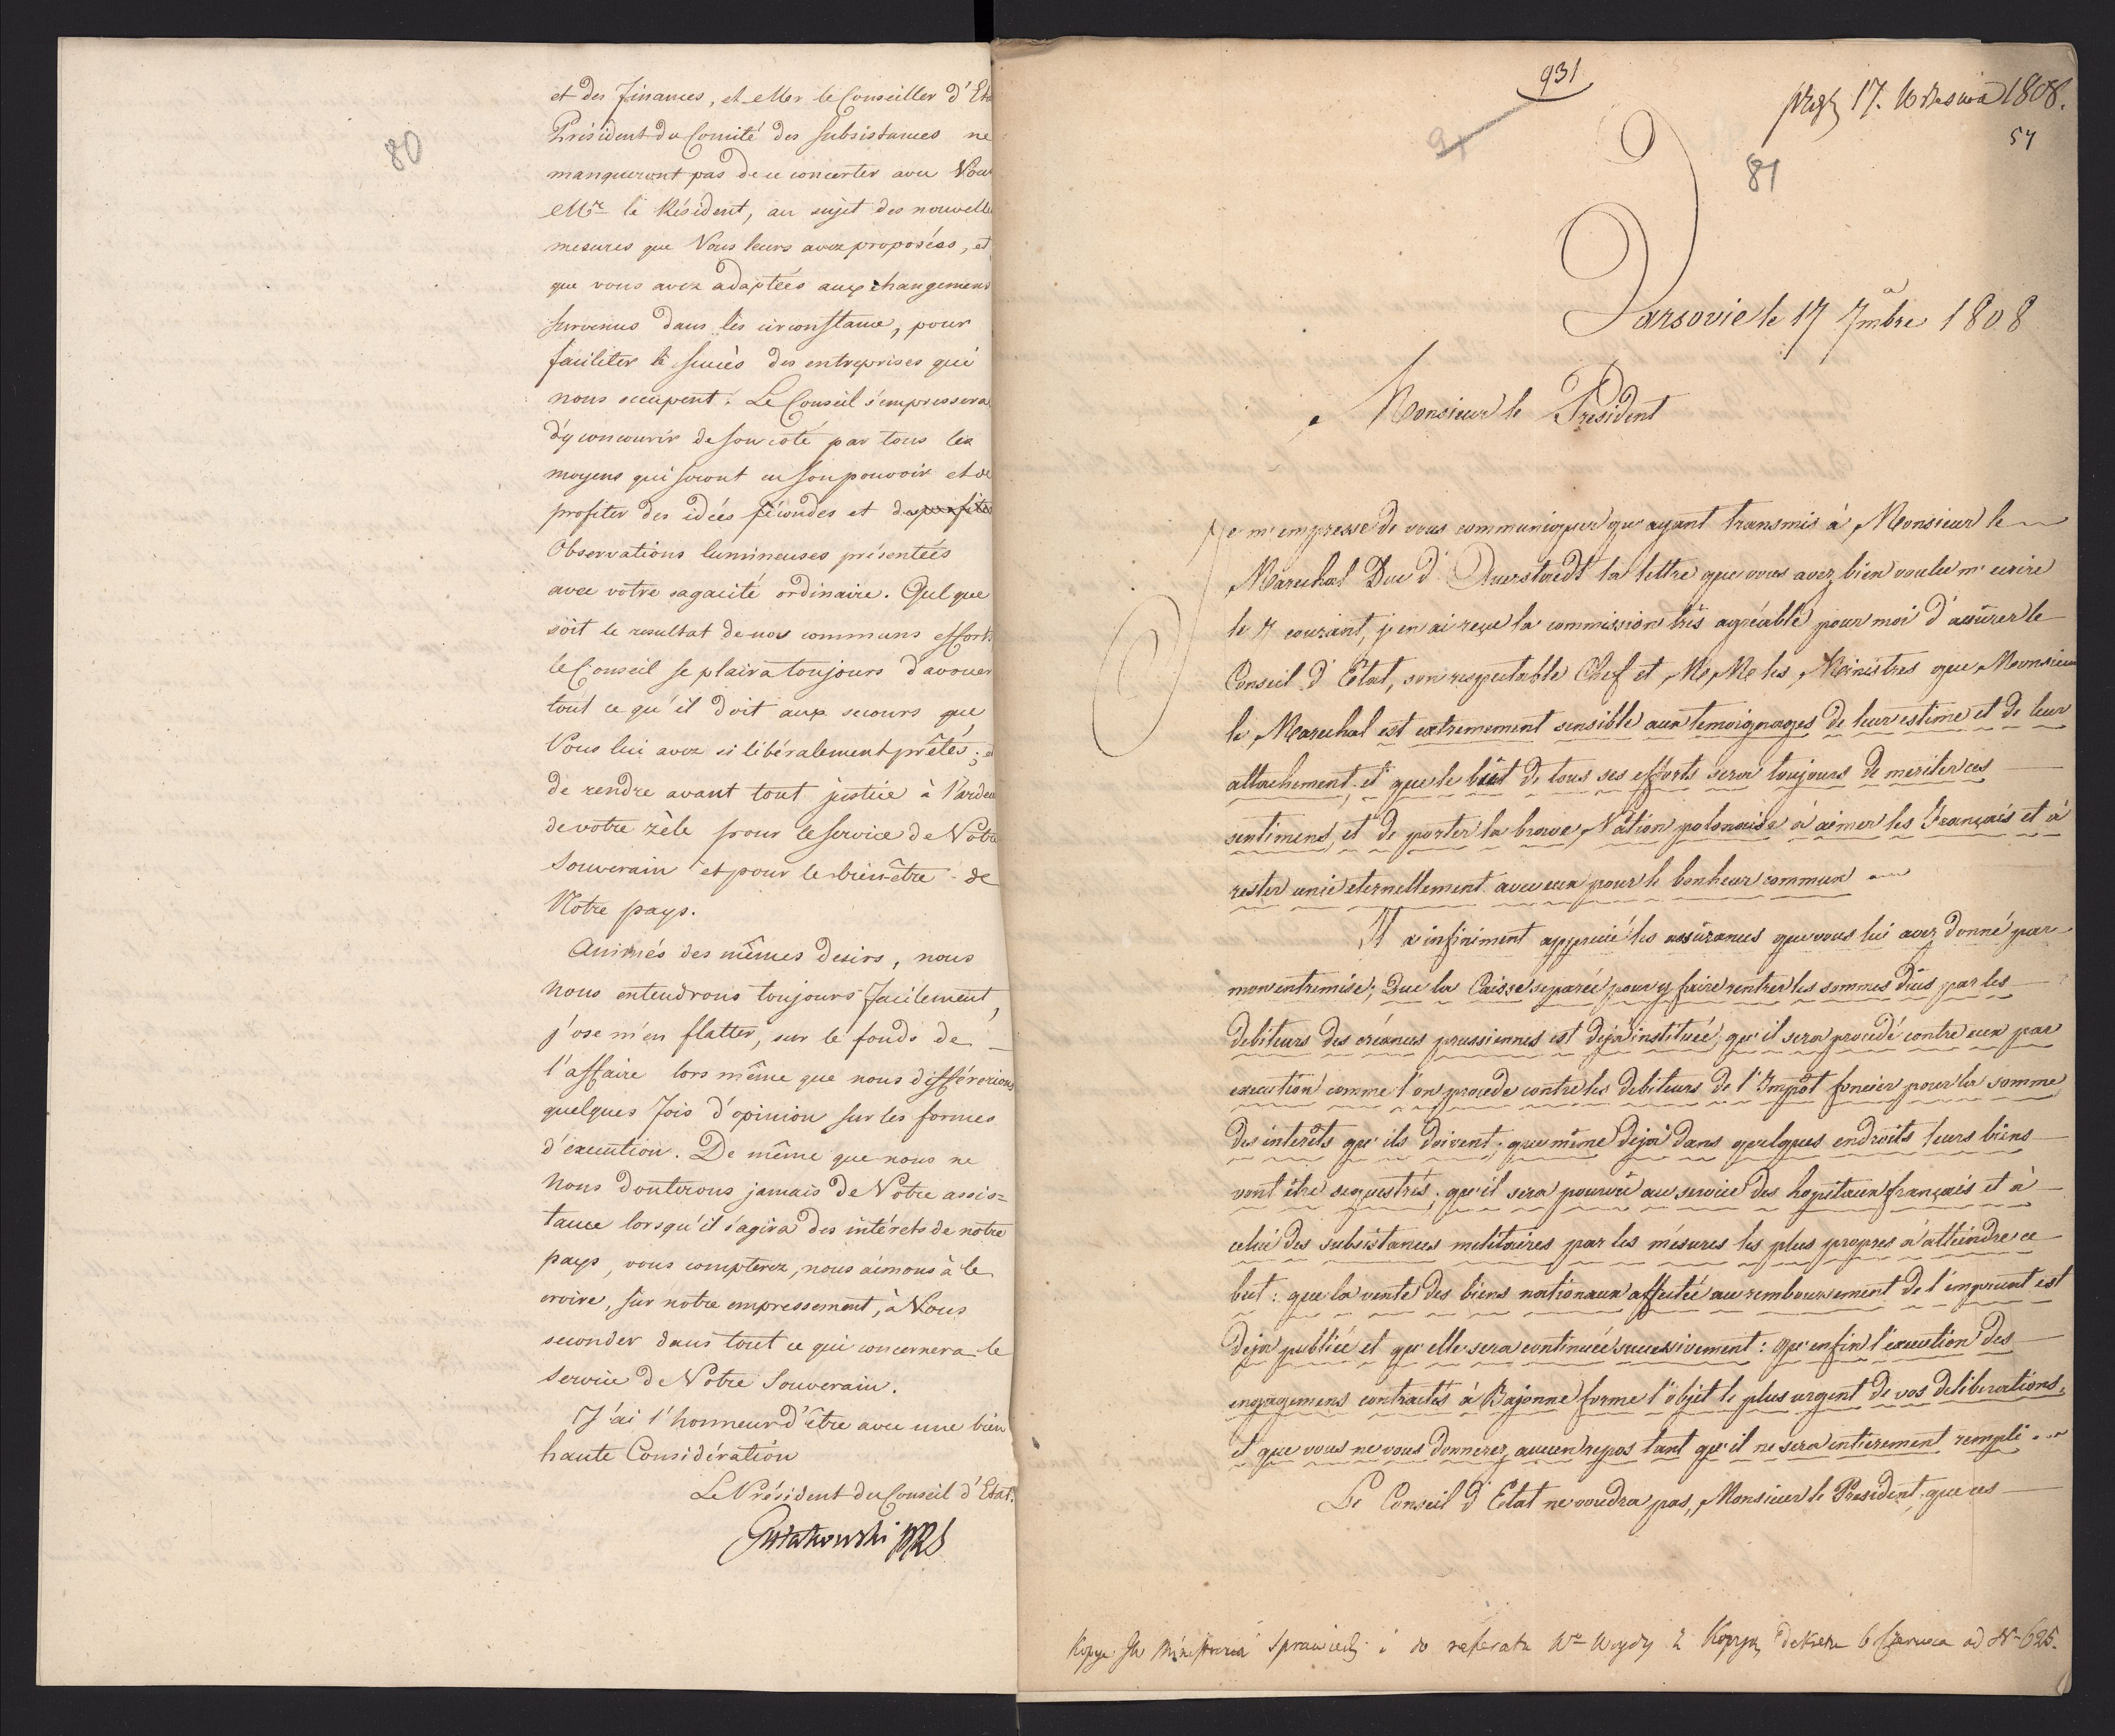 80
et des finances, et Mr le Conseiller d'Eta
Président du Comité des subsistances ne
manqueront pas de ce concerter avec Vous
Mr le Résident, au sujet des nouvelle
mesures que Vous leurs avez proposées, et
que vous avez adaptées aux changemens
survenus dans les circonstance, pour
faciliter le succès des entreprises qui
nous occupent. Le Conseil s'empressera
d'y concourir de son coté par tous les
moyens qui seront en son pouvoir et de
profiter des idées fécondes et des
Observations lumineuses présentées
avec votre sagacité ordinaire. Quel que
soit le resultat de nos communs efforts
le Conseil se plaira toujours d'avouer
tout ce qu'il doit aux secours que
Vous lui avez si libéralement prêtés; et
de rendre avant tout justice à l'ardeu
de votre zèle pour le service de Notre
Souverain et pour le bien-être de
Notre pays.
Animés des mêmes desirs, nous
nous entendrons toujours facilement,
j'ose m'en flatter, sur le fonds de
l'affaire lors même que nous différerions
quelques fois d'opinion sur les formes
d'execution. De même que nous ne
nous douterons jamais de Votre assis=
tance lorsqu'il s'agira des intérets de notre
pays, vous compterez, nous aimons à le
croire, sur notre empressement, à Vous
seconder dans tout ce qui concernera le
service de Notre Souverain.
J'ai l'honneur d'être avec une bien
haute Considération
Le Président du Conseil d'Etat.
Gutakowski
931
17. Września 1808.
54
81
Varsovie le 17 7mbre 1808
Monsieur le Président
Je m'empresse de vous communiquer qu'ayant transmis à Monsieur le
Marechal Duc d'Auerstaedt la lettre que vous avez bien voulu m'ecrire
le 7 courant, j'en ai reçu la commission très agréable pour moi d'assurer le
Conseil d'Etat, son respectable Chef et M. M. les Ministres que Monsieur
le Marechal est extremement sensible aux temoignages de leur estime et de leur
attachement, et que le but de tous ses efforts sera toujours de meriter ces
sentimens, et de porter la brave Nation polonaise à aimer les Français et à
rester unie eternellement avec eux pour le bonheur commun
Il a infiniment apprecié les assurances que vous lui avez donné par
mon entremise; Que la Caisse separée pour y faire rentrer les sommes dues par les
debiteurs des créances prussiennes est deja instituée, qu'il sera procedé contre eux par
execution comme l'on procede contre les debiteurs de l'Impôt foncier pour la somme
des interêts qu'ils doivent; que même deja dans quelques endroits leurs biens
vont être sequestrés; qu'il sera pourvu au service des hopitaux français et à
celui des subsistances militaires par les mésures les plus propres à atteindre ce
but: que la vente des biens nationaux affectée au remboursement de l'emprunt est
deja publiée et qu'elle sera continuée successivement: qu'enfin l'execution des
engagemens contractés à Bajonne forme l'objet le plus urgent de vos deliberations,
et que vous ne vous donnerez aucun repos tant qu'il ne sera entierement rempli
Le Conseil d'Etat ne voudra pas, Monsieur le President, que ces
Kopya do Sprawiedl. i do referatu 6 Czerwca ad Nr 625.